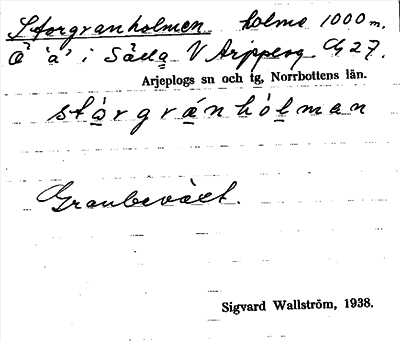 Storgranholmen holme 1000 m.
i Sädva V Arjeplog G 27.
Arjeplogs sn och tg, Norrbottens län.
stórgránhólman
Granbeväxt.
Sigvard Wallström, 1938.